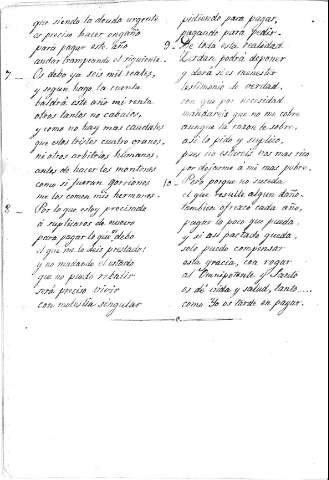 que siendo la deuda urgente
es preciso hacer engaño
para pagar este año
andar trampeando el siguiente.
7 — Os debo ya seis mil reales,
y segun hago la cuenta
valdrá este año mi renta
otros tantos no cabales,
y como no hay mas caudales
que estos tristes cuatro granos,
ni otros arbitrios humanos,
antes de hacer los montones
como si fueran gorriones
me los comen mis hermanos.
8 — Por lo que estoy precisado
á suplicaros de nuevo
para pagar lo que debo
el que me lo deis prestado:
y no mudando el estado
que no puedo rebatir
será preciso vivir
con molestia singular
pidiendo para pagar,
pagando para pedir.
9 — De toda esta realidad
Lisdan podrá deponer
y dará si es menester
testimonio de verdad,
con que por necesidad
mandareis que no me cobre
aunque la razon le sobre,
asi lo pido y suplico,
pues no estareis vos mas rico
por dejarme á mi mas pobre.
10 — Pero porque no suceda
el que resulte algun daño
tambien ofrezco cada año,
pagar lo poco que pueda,
y si asi pactado queda
solo puedo compensar
esta gracia, con rogar
al Omnipotente y Santo
os dé vida y salud, tanto....
como Yo os tarde en pagar.